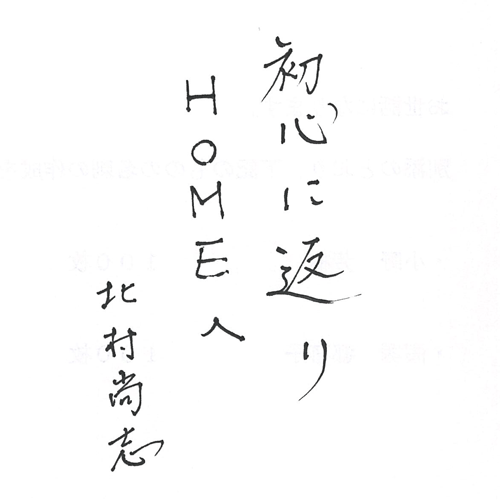 初心に返り
HOMEへ
北村尚志